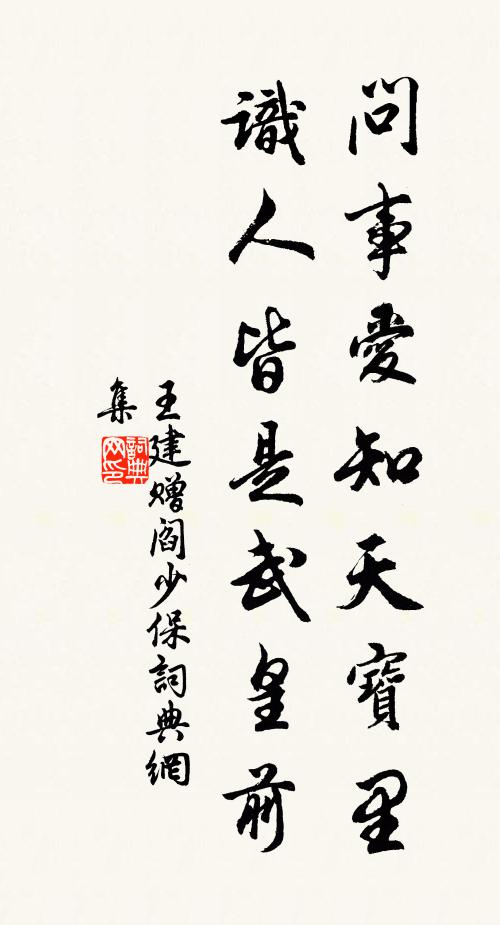 問事愛知天寶里
識人皆是武皇前
王建贈閻少保詞典網
集
詞典
网印